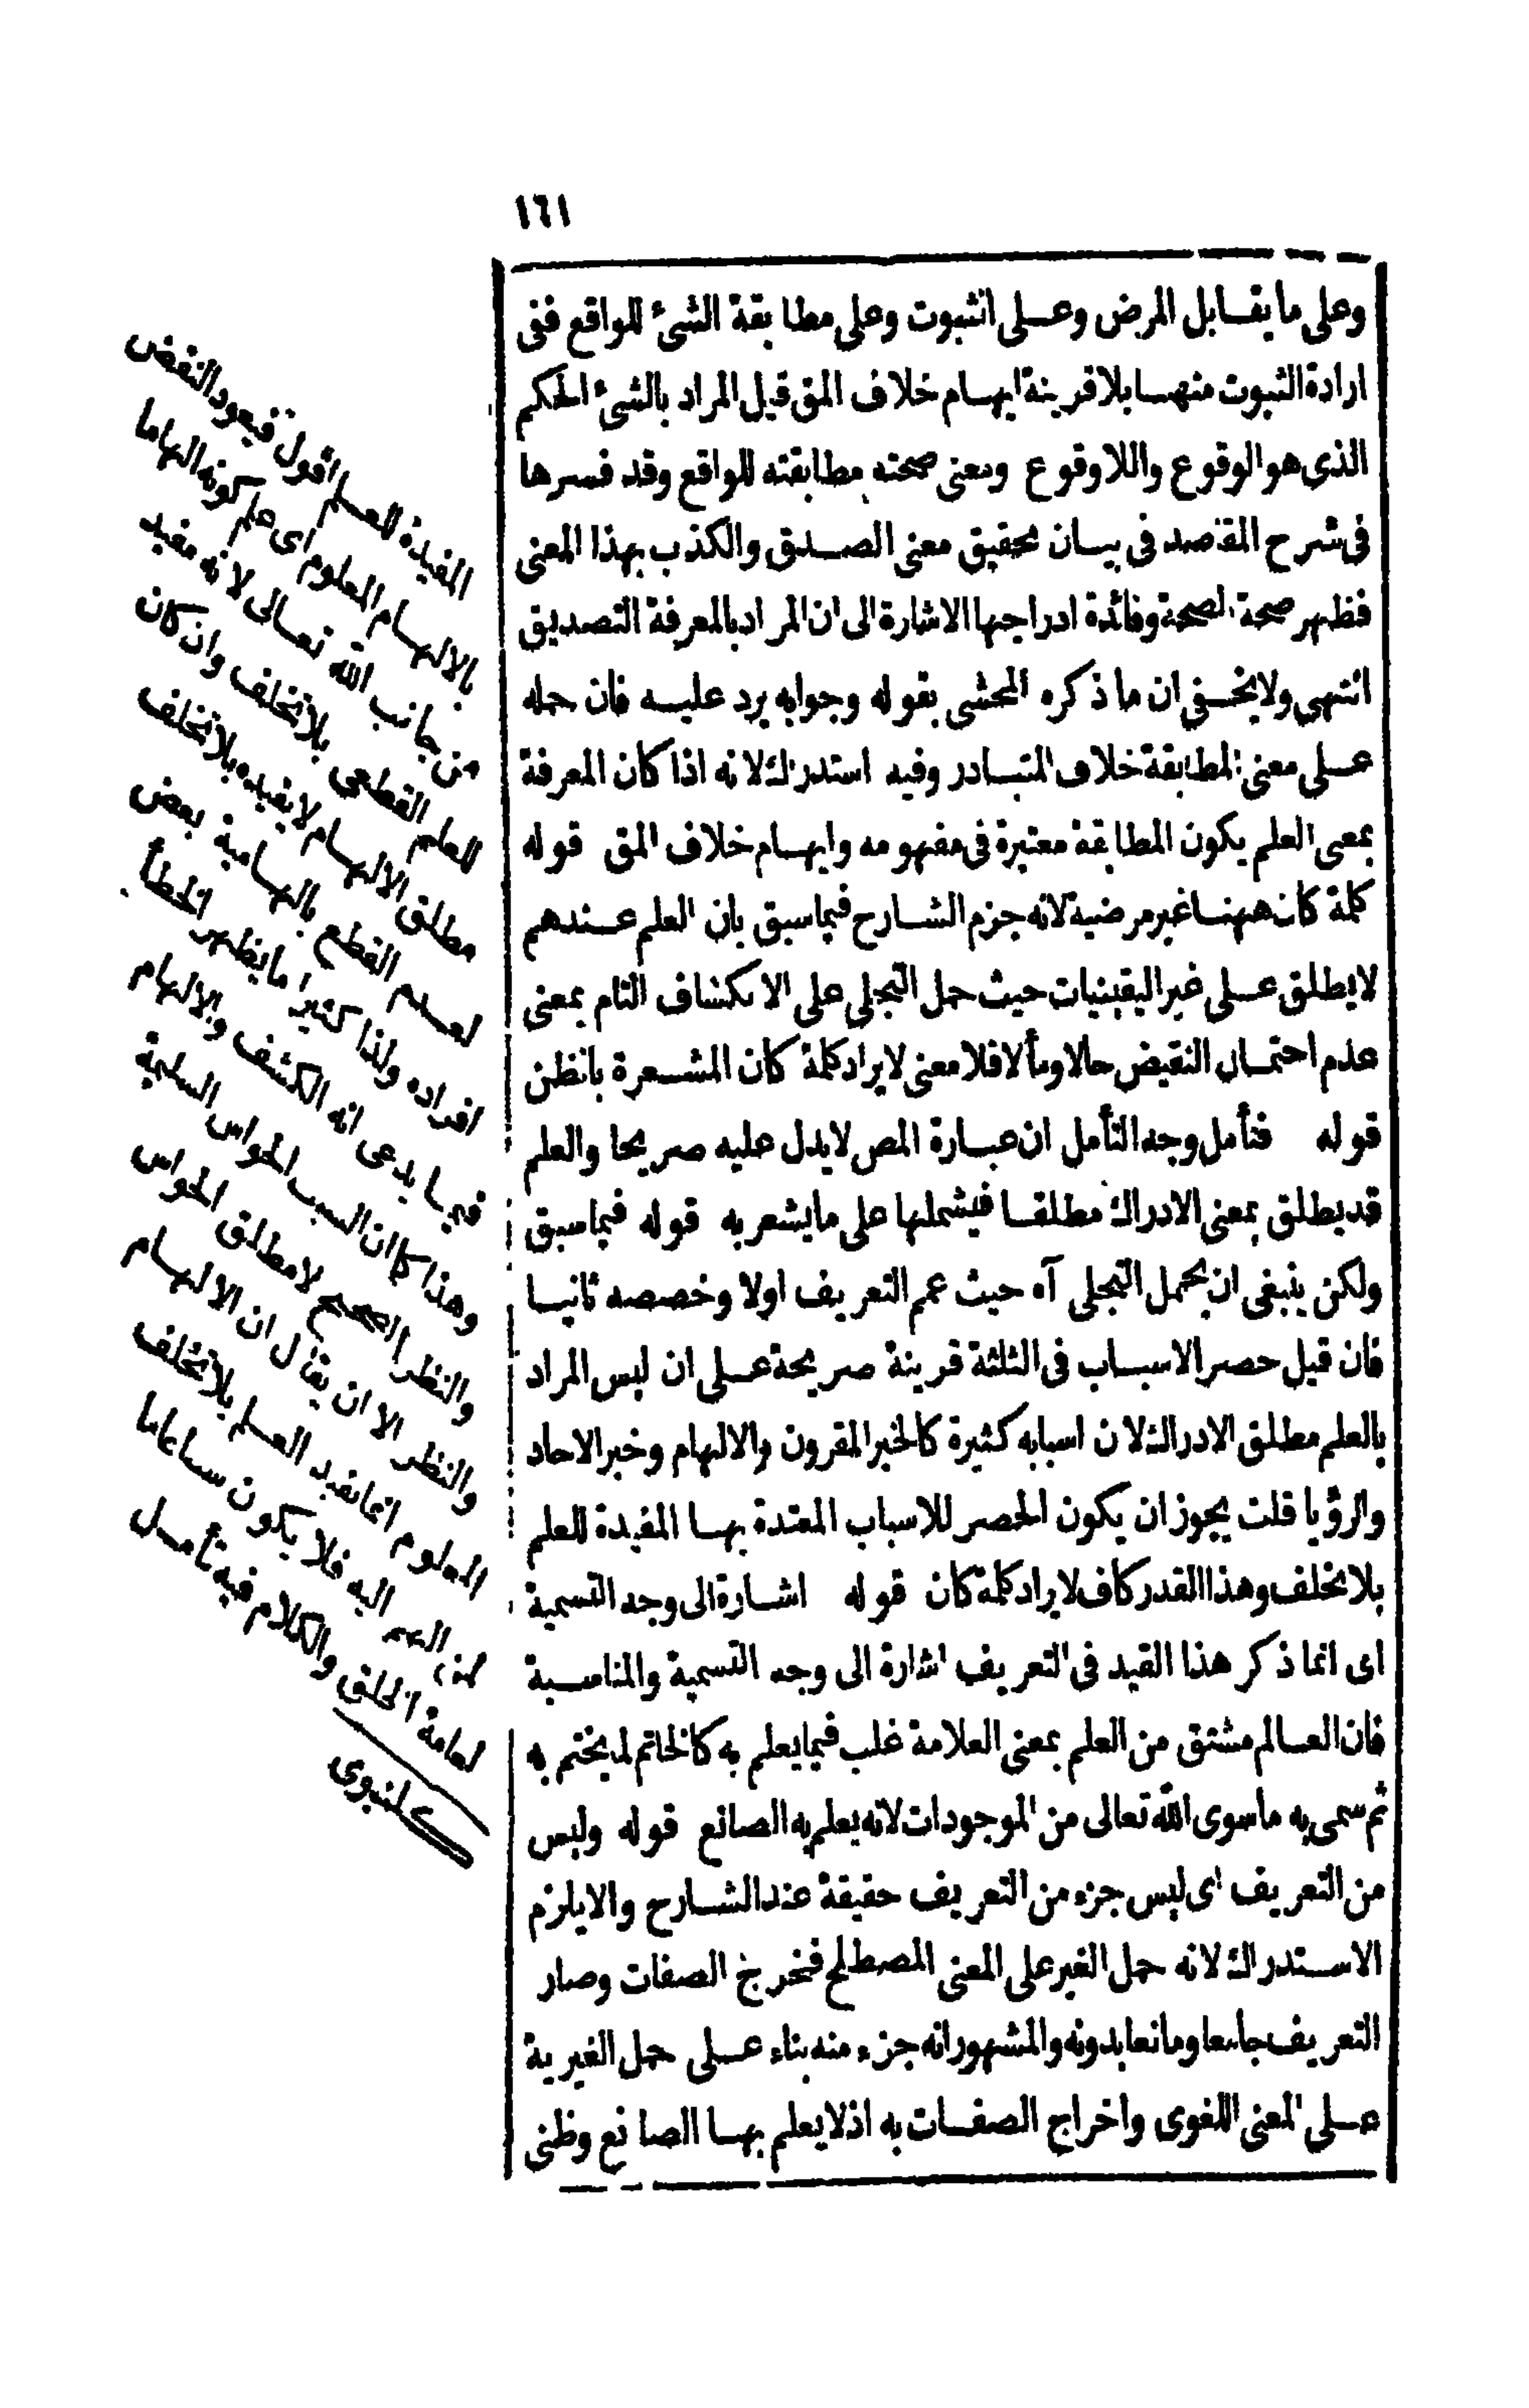 ١٦١
وعلى ما يقابل المرض وعلى الثبوت وعلى مطابقة الشئ للواقع ففى
ارادة الثبوت منهما بلا قرينة ايهام خلاف المق قيل المراد بالشئ الحكم
الذى هو الوقوع واللاوقوع ومعنى صحته مطابقته للواقع وقد فسرها
فى شرح المقاصد فى بيان تحقيق معنى الصدق والكذب بهذا المعنى
فظهر صحة الصحة وفائدة ادراجها الاشارة الى ان المراد بالمعرفة التصديق
انتهى ولا يخفى ان ما ذكره المحشى بقوله وجوابه يرد عليه فان حمله
على معنى المطابقة خلاف المتبادر وفيه استدراك لانه اذا كان المعرفة
بمعى العلم يكون المطابقة معتبرة فى مفهومه وايهام خلاف المق قوله
كلمة كان ههنا غير مرضية لانه جزم الشارح فيما سبق بان العلم عندهم
لا يطلق على غير اليقينيات حيث حمل التجلى على الانكشاف التام بمعنى
عدم احتمال النقيض حالا ومآلا فلا معنى لايراد كلمة كان المشعرة بالظن
قوله فتأمل وجه التأمل ان عبارة المص لا يدل عليه صريحا والعلم
قد يطلق بمعنى الادراك مطلقا فيشملها على ما يشعر به قوله فيما سبق
ولكن ينبغى ان يحمل التجلى آه حيث عمم التعريف اولا وخصصه ثانيا
فان قيل حصر الاسباب فى الثلثة قرينة صريحة على ان ليس المراد
بالعلم مطلق الادراك لان اسبابه كثيرة كالخبر المقرون والالهام وخبر الاحاد
والرؤيا قلت يجوز ان يكون الحصر للاسباب المعتدة بها المفيدة للعلم
بلا تخلف وهذا القدر كاف لايراد كلمة كان قوله اشارة الى وجه التسمية
اى انما ذكر هذا القيد فى التعريف اشارة الى وجه التسمية والمناسبة
فان العالم مشتق من العلم بمعنى العلامة غلب فيما يعلم به كالخاتم لما يختم به
ثم سمى به ما سوى الله تعالى من الموجودات لانه يعلم به الصانع قوله وليس
من التعريف اى ليس جزء من التعريف حقيقة عند الشارح والا يلزم
الاستدراك لانه حمل الغير على المعنى المصطلح فخرج الصفات وصار
التعريف جامعا ومانعا بدونه والمشهور انه جزء منه بناء على حمل الغيرية
على المعنى اللغوى واخراج الصفات به اذ لا يعلم بها الصانع وظنى
المفيدة للعلم اقول فيعود النقض
بالالهام المعلوم اى علم كونه الهاما
من جانب الله تعالى لانه مفيد
للعلم القطعى بلا تخلف وان كان
مطلق الالهام لا يفيده بلا تخلف
لعدم القطع بالهامية بعض
افراده ولذا كثيرا ما يظهر الخطأ
فيما يدعى انه الكشف والالهام
وهذا كما ان السبب الحواس السليمة
والنظر الصحيح لا مطلق الحواس
والنظر الا ان يقال ان الالهام
المعلوم انما يفيد العلم بلا تخلف
لمن الهم اليه فلا يكون سببا عاما
لعامة الخلق والكلام فيه تأمل
كلنبوى